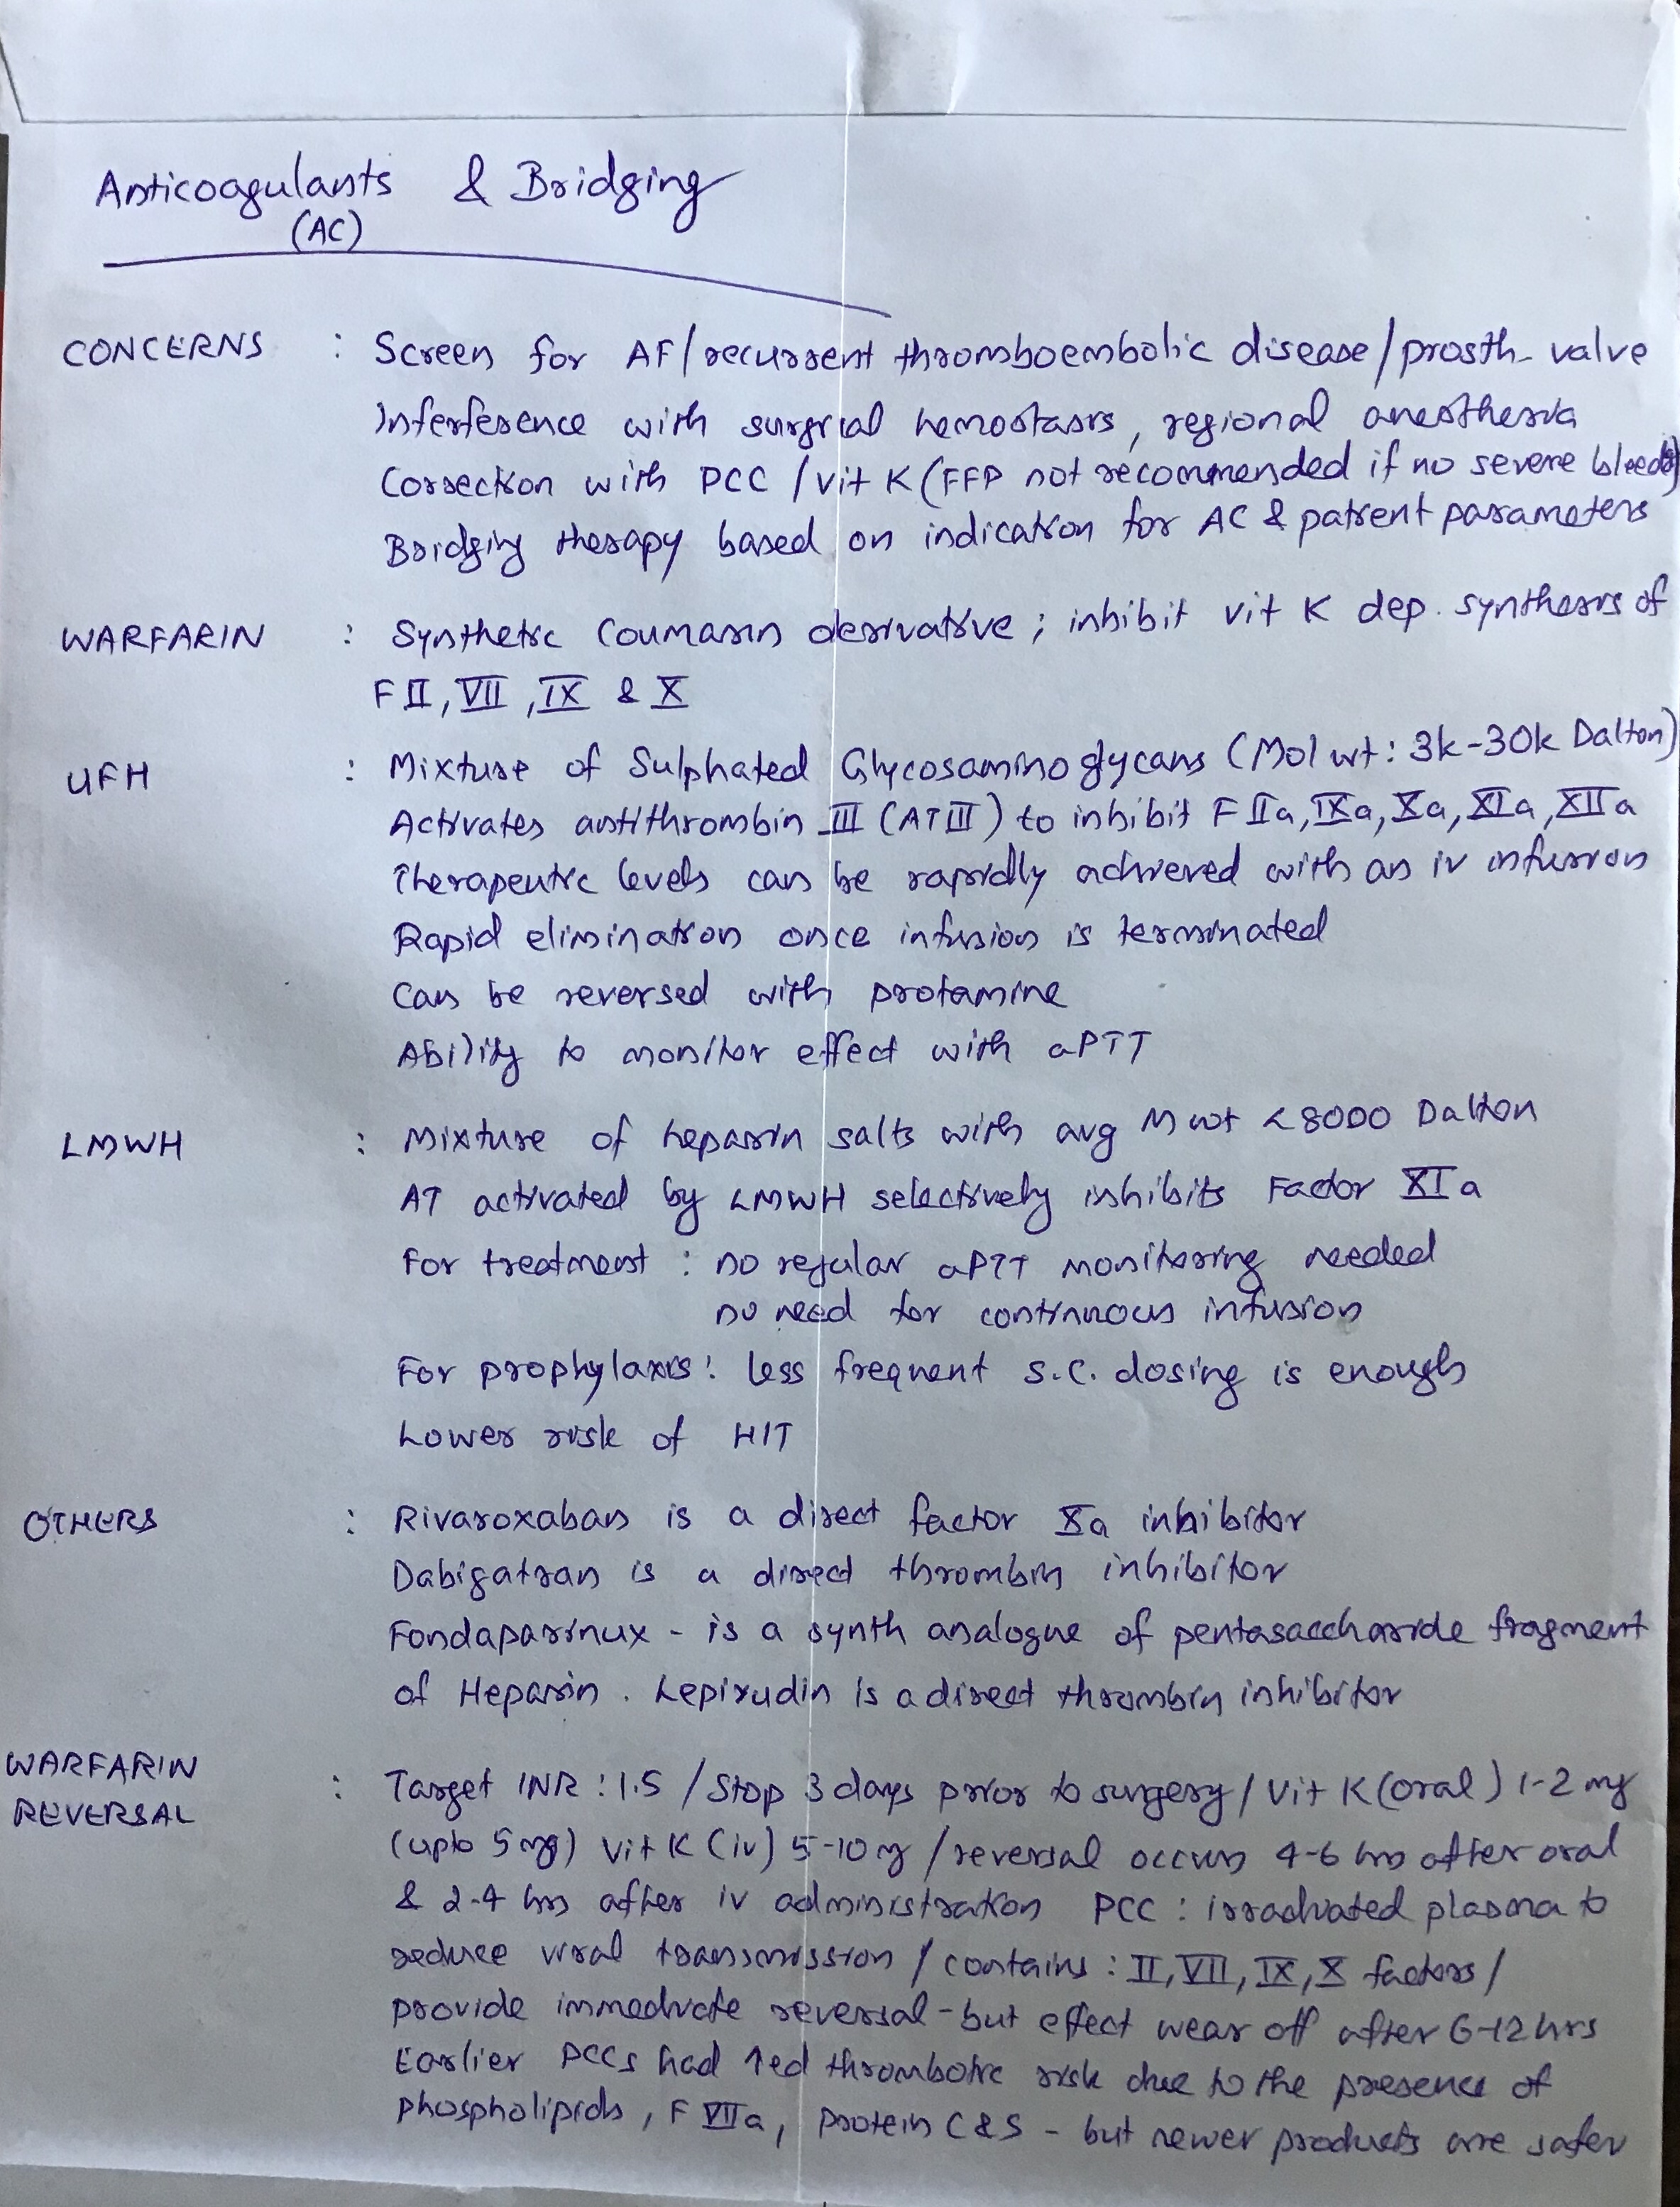 Anticoagulants & Bridging
(AC)
CONCERNS : Screen for AF/recurrent thromboembolic disease/prosth- valve
Interference with surgical hemostasis, regional anesthesia
Correction with PCC / Vit K (FFP not recommended if no severe bleeds)
Bridging therapy based on indication for AC & patient parameters
WARFARIN : Synthetic Coumarin derivative ; inhibit vit K dep. synthesis of
F II, VII, IX & X
UFH : Mixture of Sulphated Glycosaminoglycans (Mol wt: 3k-30k Dalton)
Activates antithrombin III (AT III) to inhibit F IIa, IXa, Xa, XIa, XIIa
Therapeutic levels can be rapidly achieved with an iv infusion
Rapid elimination once infusion is terminated
Can be reversed with protamine
Ability to monitor effect with aPTT
LMWH : Mixture of heparin salts with avg M wt <8000 Dalton
AT activated by LMWH selectively inhibits Factor XIa
For treatment : no regular aPTT monitoring needed
no need for continuous infusion
For prophylaxis : less frequent s.c. dosing is enough
Lower risk of HIT
OTHERS : Rivaroxaban is a direct factor Xa inhibitor
Dabigatran is a direct thrombin inhibitor
Fondaparinux - is a synth analogue of pentasaccharide fragment
of Heparin. Lepirudin is a direct thrombin inhibitor
WARFARIN REVERSAL : Target INR : 1.5 / Stop 3 days prior to surgery / Vit K (oral) 1-2 mg
(upto 5 mg) Vit K (iv) 5-10 mg / reversal occurs 4-6 hrs after oral
& 2-4 hrs after iv administration PCC : irradiated plasma to
reduce viral transmission / contains : II, VII, IX, X factors /
provide immediate reversal - but effect wear off after 6-12 hrs
Earlier PCCs had ↑ed thrombotic risk due to the presence of
phospholipids, F VIIa, protein C & S - but newer products are safer